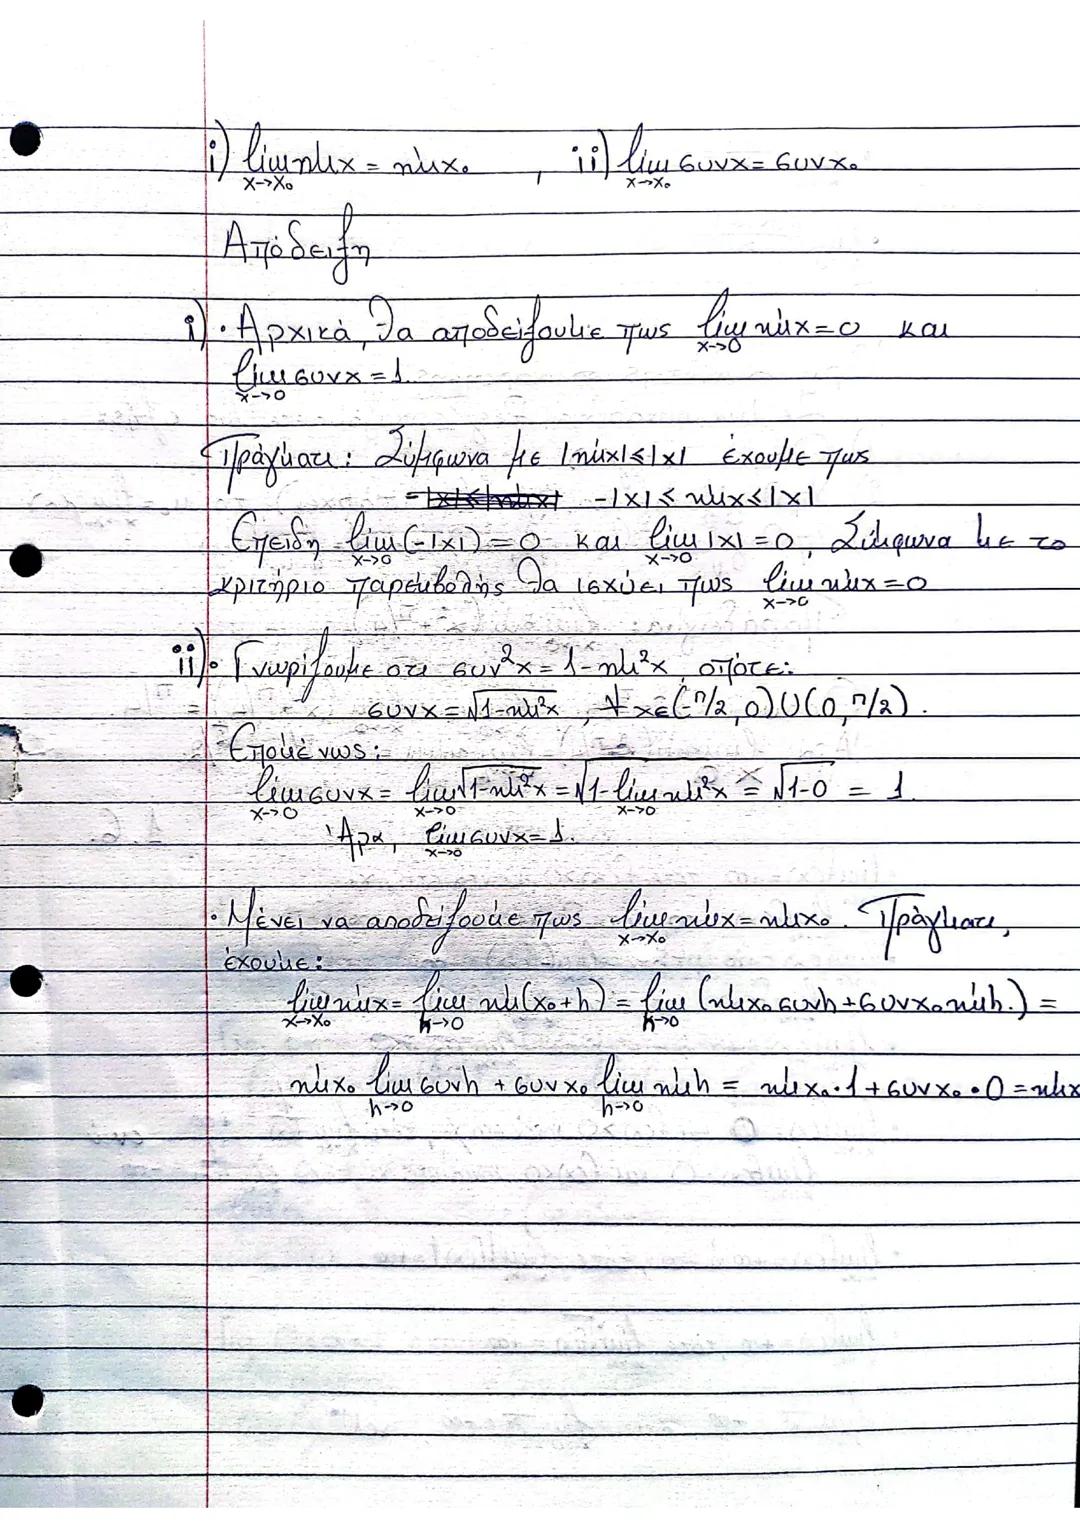 i) lim ημx = ημx₀ , ii) lim συνx = συνx₀
x→x₀ x→x₀
Απόδειξη
i) · Αρχικά, θα αποδείξουμε πως lim ημx = 0 και
x→0
lim συνx = 1.
x→0
Πράγματι: Σύμφωνα με |ημx| ≤ |x| έχουμε πως
-|x| ≤ ημx ≤ |x|
Επειδη lim (-|x|) = 0 και lim |x| = 0, Σύμφωνα με το
x→0 x→0
κριτήριο παρεμβολής θα ισχύει πως lim ημx = 0
x→0
ii) · Γνωρίζουμε οτι συν²x = 1 - ημ²x, οπότε:
συνx = √1-ημ²x , ∀ x ∈ (-π/2, 0) ∪ (0, π/2).
Επομένως:
lim συνx = lim √1-ημ²x = √1-lim ημ²x = √1-0 = 1.
x→0 x→0 x→0
Άρα, lim συνx = 1.
x→0
· Μένει να αποδείξουμε πως lim ημx = ημx₀. Πράγματι,
x→x₀
έχουμε:
lim ημx = lim ημ(x₀+h) = lim (ημx₀ συνh + συνx₀ ημh.) =
x→x₀ h→0 h→0
ημx₀ lim συνh + συνx₀ lim ημh = ημx₀ · 1 + συνx₀ · 0 = ημx
h→0 h→0